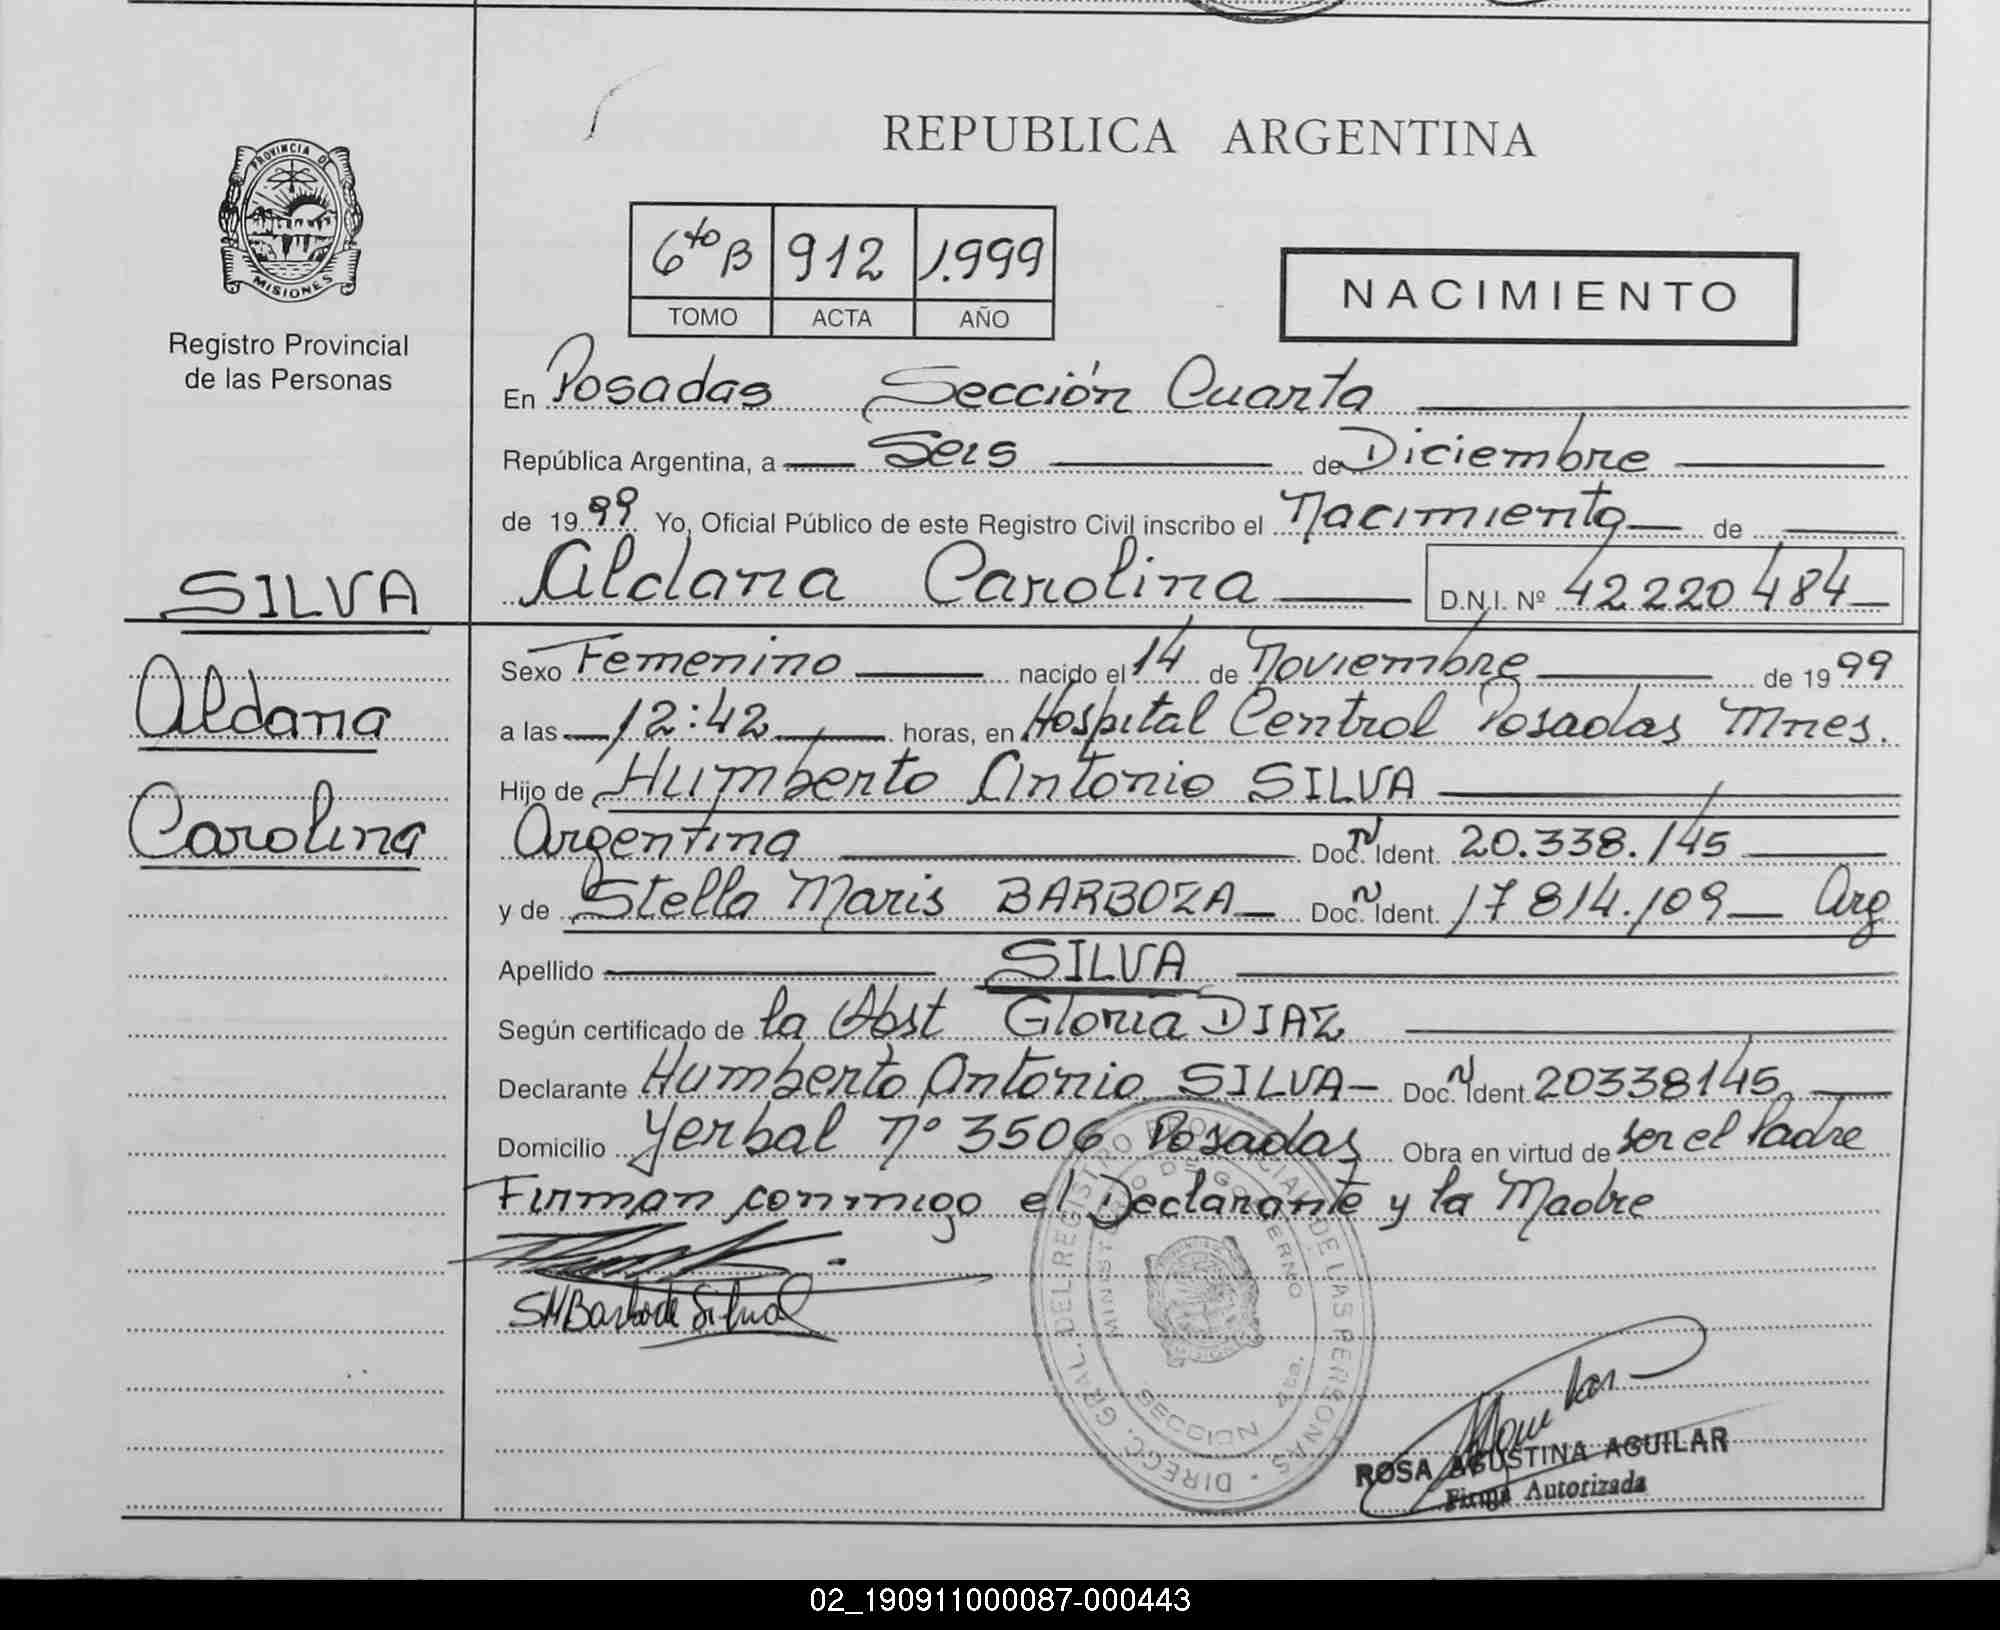 REPUBLICA ARGENTINA
PROVINCIA DE
MISIONES
Registro Provincial
de las Personas
6to B 912 1.999
TOMO ACTA AÑO
NACIMIENTO
En Posadas Sección Cuarta
República Argentina, a Seis de Diciembre
de 1999 Yo, Oficial Público de este Registro Civil inscribo el Nacimiento de
SILVA
Aldana Carolina D.N.I. Nº 42.220.484
Sexo Femenino nacido el 14 de Noviembre de 1999
Aldana
a las 12:42 horas, en Hospital Central Posadas Mnes.
Hijo de Humberto Antonio SILVA
Carolina
Argentina Doc. N Ident. 20.338.145
y de Stella Maris BARBOZA Doc. N Ident. 17.814.109 Arg
Apellido SILVA
Según certificado de la Obst Gloria DIAZ
Declarante Humberto Antonio SILVA Doc. N Ident. 20338145
Domicilio Yerbal nº 3506 Posadas Obra en virtud de ser el Padre
Firman conmigo el Declarante y la Madre
DIREC. GRAL. DEL REGISTRO PROVINCIAL DE LAS PERSONAS
MINISTERIO DE GOBIERNO
SECCION 4ta.
ROSA AGUSTINA AGUILAR
Firma Autorizada
02_190911000087-000443